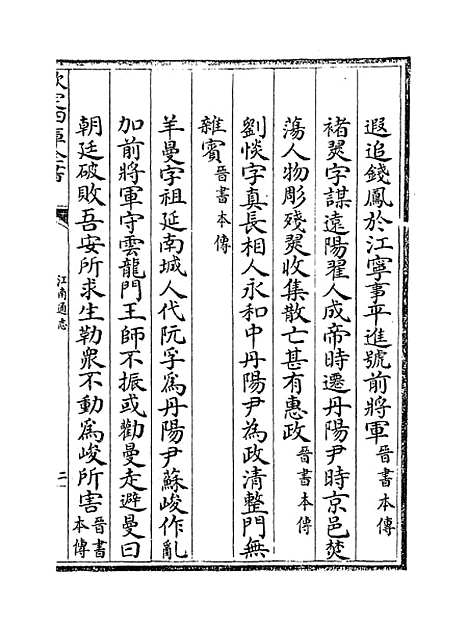 遐追錢鳳於江寧事平進號前將軍晉書本傳
褚㷟字謀遠陽翟人成帝時遷丹陽尹時京邑焚
蕩人物彫殘㷟收集散亡甚有惠政晉書本傳
劉惔字真長相人永和中丹陽尹為政清整門無
雜賓晉書本傳
羊曼字祖延南城人代阮孚爲丹陽尹蘇峻作亂
加前將軍守雲龍門王師不振或勸曼走避曼曰
朝廷破敗吾安所求生勒衆不動爲峻所害晉書本傳
欽定四庫全書
江南通志